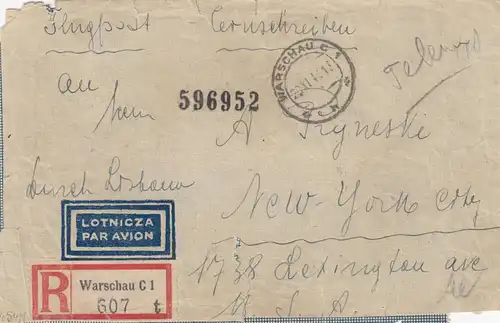 Flugpost Fernschreiben
WARSCHAU C 1
An
Herrn
596952
A.
durch Lissabon
New-York City
LOTNICZA
PAR AVION
1738 Lexington ave
R
Warschau C 1
607 t
U. S. A.